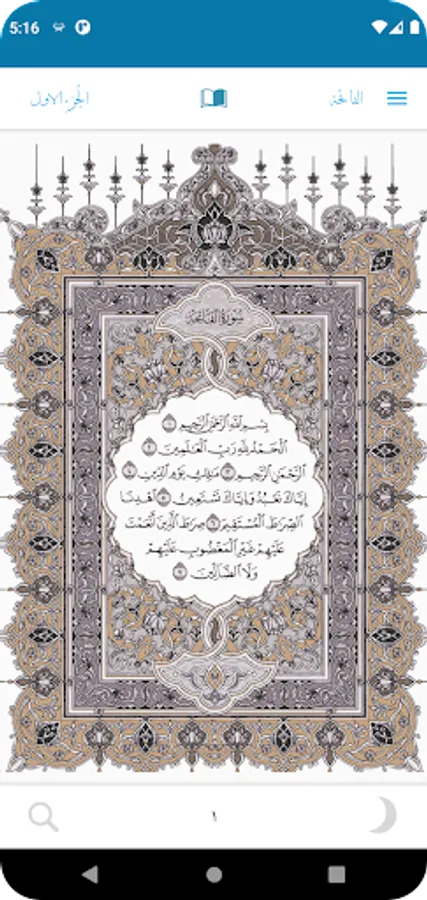 5:16
الجزء الاول
الفاتحة
سورة الفاتحة
بسم الله الرحمن الرحيم ١
الحمد لله رب العلمين ٢
الرحمن الرحيم ٣ ملك يوم الدين ٤
إياك نعبد وإياك نستعين ٥ اهدنا
الصرط المستقيم ٦ صرط الذين أنعمت
عليهم غير المغضوب عليهم
ولا الضالين ٧
١